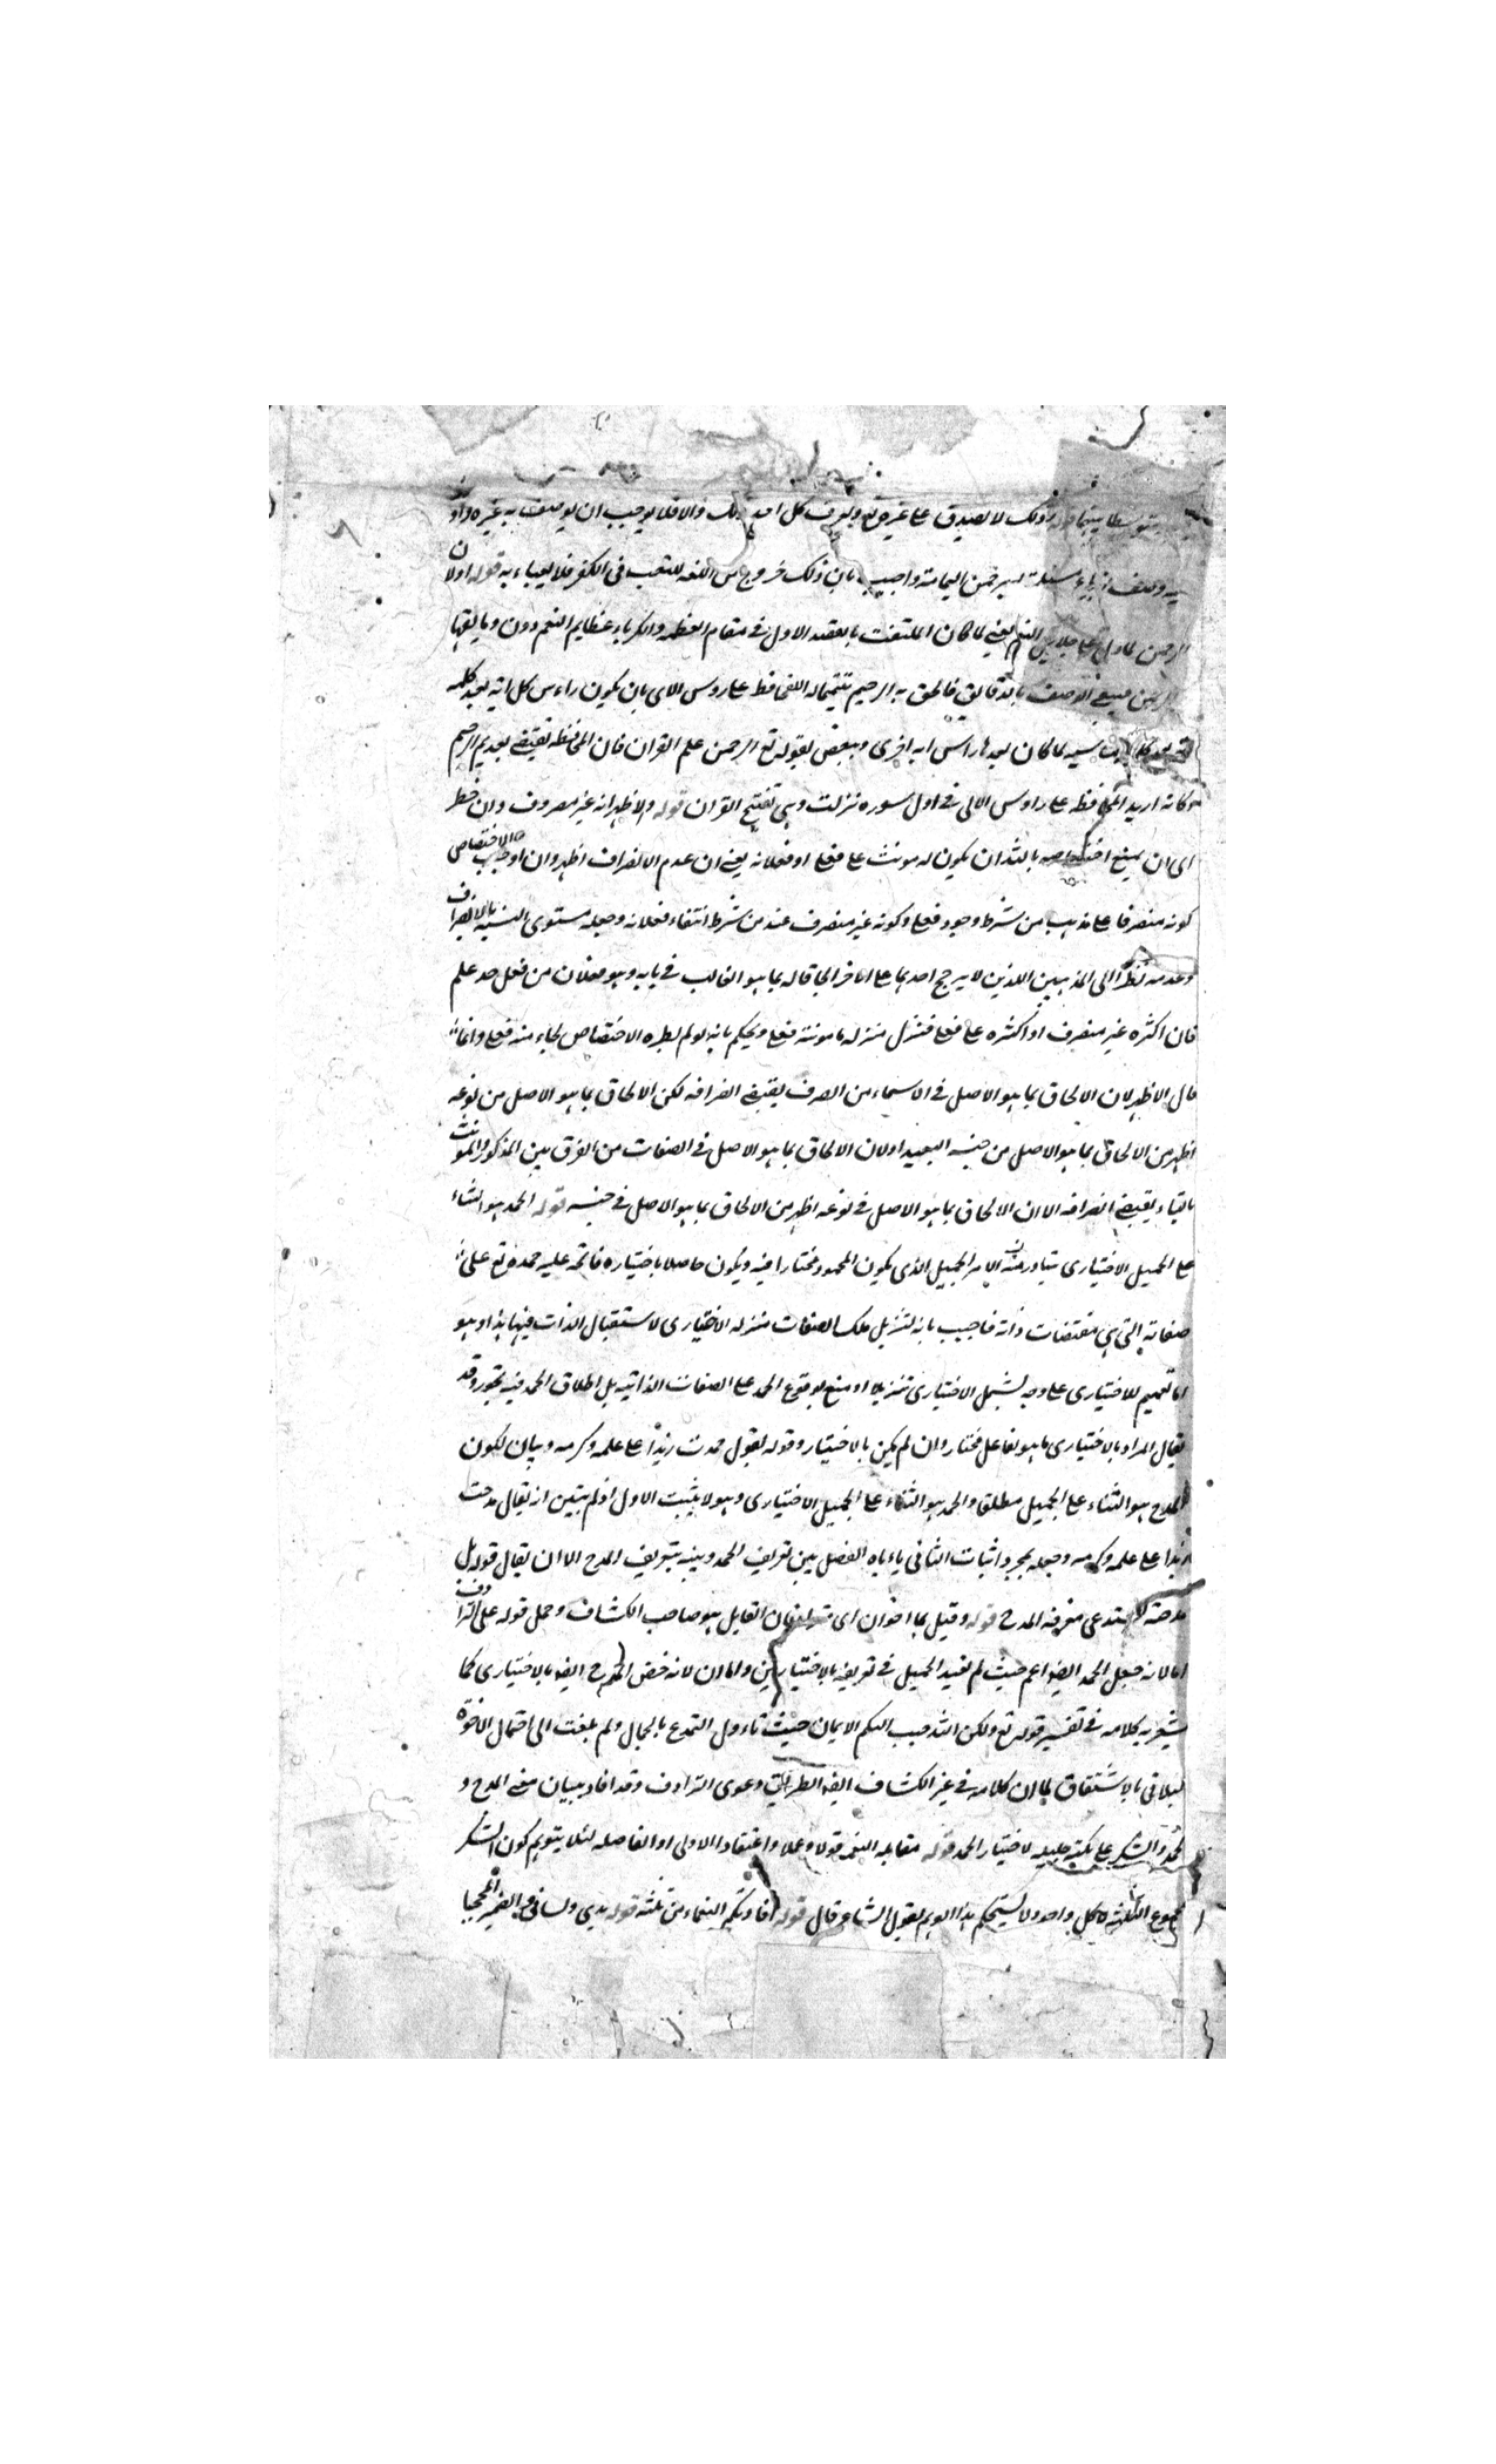 يتوسط بينهما قوله وذلك لا يصدق على غيره تع ويعرف كل احد ذلك والا فلا يوجب ان يوصف به غيره واو
به وصف ازباء مسيلمة برحمن اليمامة واجيب بان ذلك خروج من اللغة للتعب فى الكفر فلا يعباء به قوله اولان
الرحمن لما دل على جلايل النعم يعنى لما كان الملتفت بالقصد الاول فى مقام العظمة والكبرياء عظايم النعم دون دقايقها
بالدقايق فالحق به الرحيم تتميما له المحافظ على روس الاى بان يكون راءس كل اية بعد كلمه
لما كان بعدها راس اية اخرى وبعض بقوله تع الرحمن علم القران فان المحافظة تقتضى تقديم الرحيم
وكانه اريد المحافظة على راوس الاى فى اول سورة نزلت وهى تفتتح القران قوله والاظهر انه غير مصروف وان حظر
اى ان يمنع اختصاصه بالله ان يكون له مونث على فعلى او فعلانه يعنى ان عدم الانصراف اظهر وان اوجب الاختصاص
كونه منصرفا على مذهب من شرط وجود فعلى وكونه غير منصرف عند من شرط انتفاء فعلانه وجعله مستوى النسبة بالانصراف
وعدمه نظرا الى المذهبين اللذين لا يرجح احدهما على الاخر الحاقا له بما هو الغالب فى بابه وهو فعلان من فعل حد علم
فان اكثره غير منصرف او اكثره على فعلى فتنزل منزله ما مونثه فعلى ويحكم بانه لو لم يطره الاختصاص لجاء منه فعلى وانما
قال الاظهر لان الالحاق بما هو الاصل فى الاسماء من الصرف يقتضى انصرافه لكن الالحاق بما هو الاصل من نوعه
اظهر من الالحاق بما هو الاصل من جنسه البعيد اولان الالحاق بما هو الاصل فى الصفات من الفرق بين المذكر والمونث
بالتاء يقتضى انصرافه الا ان الالحاق بما هو الاصل فى نوعه اظهر من الالحاق بما هو الاصل فى جنسه قوله الحمد هو الثناء
على الجميل الاختيارى يتبادر منه الامر الجميل الذى يكون المحمود مختارا فيه ويكون حاصلا باختياره فاتجه عليه حمده تع على
صفاته التى هى مقتضات ذاته فاجيب بانه لتنزيل تلك الصفات منزله الاختيارى لاستقلال الذات فيها هذا وهو
اما تعميم للاختيارى على وجه يشمل الاختيارى تنزيلا او منع لوقوع الحمد على الصفات الذاتيه بل اطلاق الحمد فيه تجوز وقد
يقال المراد بالاختيارى ما هو لفاعل مختار وان لم يكن بالاختيار وقوله تقول حمدت زيدا على علمه وكرمه وبيان لكون
المدح هو الثناء على الجميل مطلقا والحمد هو الثناء على الجميل الاختيارى وهو لا يثبت الاول اذ لم يتبين انه يقال مدحت
زيدا على علمه وكرمه وجعله لمجرد اثبات الثانى ياءباه الفصل بين تعريف الحمد وبينه بتعريف المدح الا ان يقال قوله بل
مدحته لا يستدعى معرفة المدح قوله وقيل هما اخوان اى مترادفان القايل هو صاحب الكشاف وحمل قوله على الترادف
اما لانه جعل الحمد ايضا اعم حيث لم يقيد الجميل فى تعريفه بالاختيارى واما لانه خص المدح ايضا بالاختيارى كما
يشعر به كلامه فى تفسير قوله تع ولكن الله حبب اليكم الايمان حيث تاءول التمدح بالجمال ولم يلتفت الى احتمال الاخوة
بالاشتقاق لما ان كلامه فى غير الكشاف ايضا دعوى الترادف وقد افاد ببيان معنى المدح و
الحمد والشكر على نكتة جليله لاختيار الحمد قوله مقابله النعمة قولا وعملا واعتقادا الاولى او الفاصله لئلا يتوهم كون الشكر
مجموع الثلثه لا كل واحد ولا يستحكم هذا الوهم بقول الشاعر قال قوله افادتكم النعماء منى ثلثه قوله يدى ولسانى والضمير المحجبا